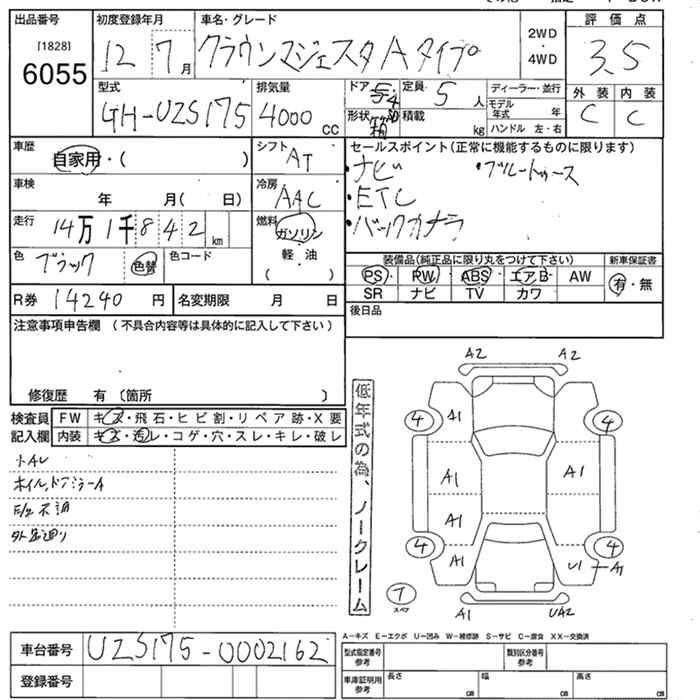 出品番号
[1828]
6055
初度登録年月
12 7月
車名・グレード
クラウンマジェスタ Aタイプ
2WD
・
4WD
評価点
3.5
型式
GH-UZS175
排気量
4000 CC
ドア
4
形状
箱
定員
5 人
積載
kg
ディーラー・並行
モデル年式 年
ハンドル 左・右
外装 内装
C C
車歴
自家用・( )
シフト
AT
車検
年 月( 日)
冷房
AAC
走行
14万1千842km
燃料
ガソリン
軽・油
( )
色
ブラック 色替
色コード
R券 14240 円
名変期限 月 日
セールスポイント(正常に機能するものに限ります)
・ナビ ・ブルートゥース
・ETC
・バックカメラ
装備品(純正品に限り丸をつけて下さい)
PS PW ABS エアB AW
SR ナビ TV カワ
新車保証書
有・無
後日品
注意事項申告欄(不具合内容等は具体的に記入して下さい)
修復歴 有〔箇所 〕
検査員記入欄
FW キズ・飛石・ヒビ割・リペア跡・X要
内装 キズ・汚レ・コゲ・穴・スレ・キレ・破レ
ホイル,ドアミラーA
不調
外品廻り
低年式の為、ノークレーム
A2 A2
4 A1 4
A1 A1
A1
4 A1 U1 4 A1
T
スペア
A1 UA2
A−キズ E−エクボ U−凹み W−補修跡 S−サビ C−腐食 XX−交換済
車台番号 UZS175-0002162
登録番号
型式指定番号
参考
類別区分番号
参考
車庫証明用
参考
長さ cm
幅 cm
高さ cm